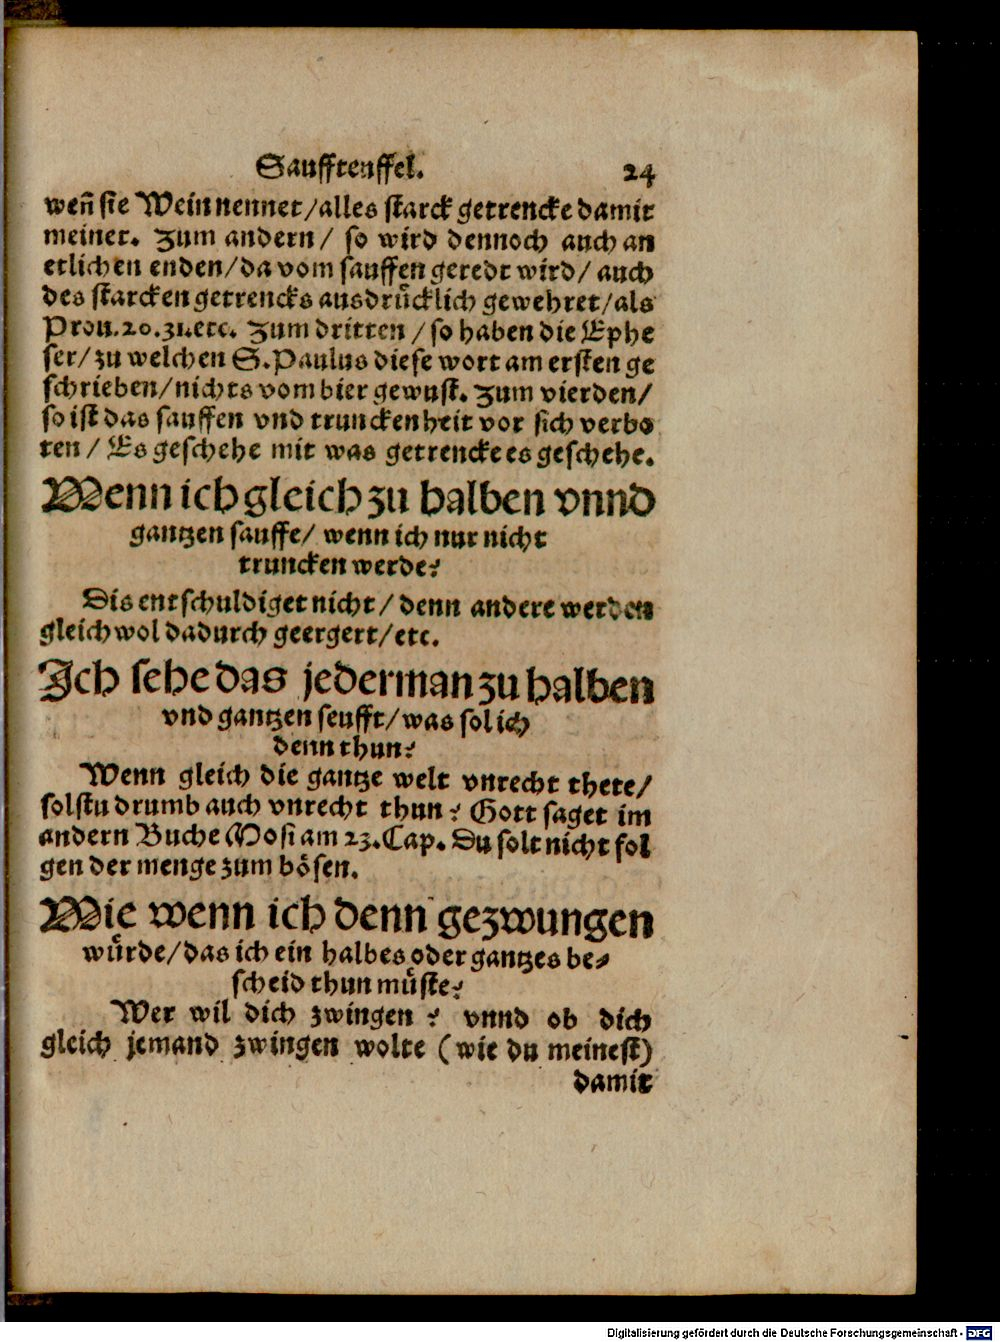 Saufftenffel. 24
wen̄ sie Wein nennet/alles starck getrencke damit
meinet. Zum andern/ so wird dennoch auch an
etlichen enden/da vom sauffen geredt wird/ auch
des starcken getrencks ausdruͤcklich gewehret/als
Prou.20.31.etc. Zum dritten /so haben die Ephe
ser/zu welchen S.Paulus diese wort am ersten ge
schrieben/nichts vom bier gewust. Zum vierden/
so ist das sauffen vnd trunckenheit vor sich verbo
ten/ Es geschehe mit was getrencke es geschehe.
Wenn ich gleich zu halben vnnd
gantzen sauffe/ wenn ich nur nicht
truncken werde?
Dis entschuldiget nicht/ denn andere werden
gleichwol dadurch geergert/etc.
Ich sehe das jederman zu halben
vnd gantzen seufft/was sol ich
denn thun?
Wenn gleich die gantze welt vnrecht thete/
solstu drumb auch vnrecht thun? Gott saget im
andern Buche Mosi am 23.Cap. Du solt nicht fol
gen der menge zum boͤsen.
Wie wenn ich denn gezwungen
wuͤrde/das ich ein halbes oder gantzes be⸗
scheid thun muͤste?
Wer wil dich zwingen? vnnd ob dich
gleich jemand zwingen wolte (wie du meinest)
damit
Digitalisierung gefördert durch die Deutsche Forschungsgemeinschaft - DFG